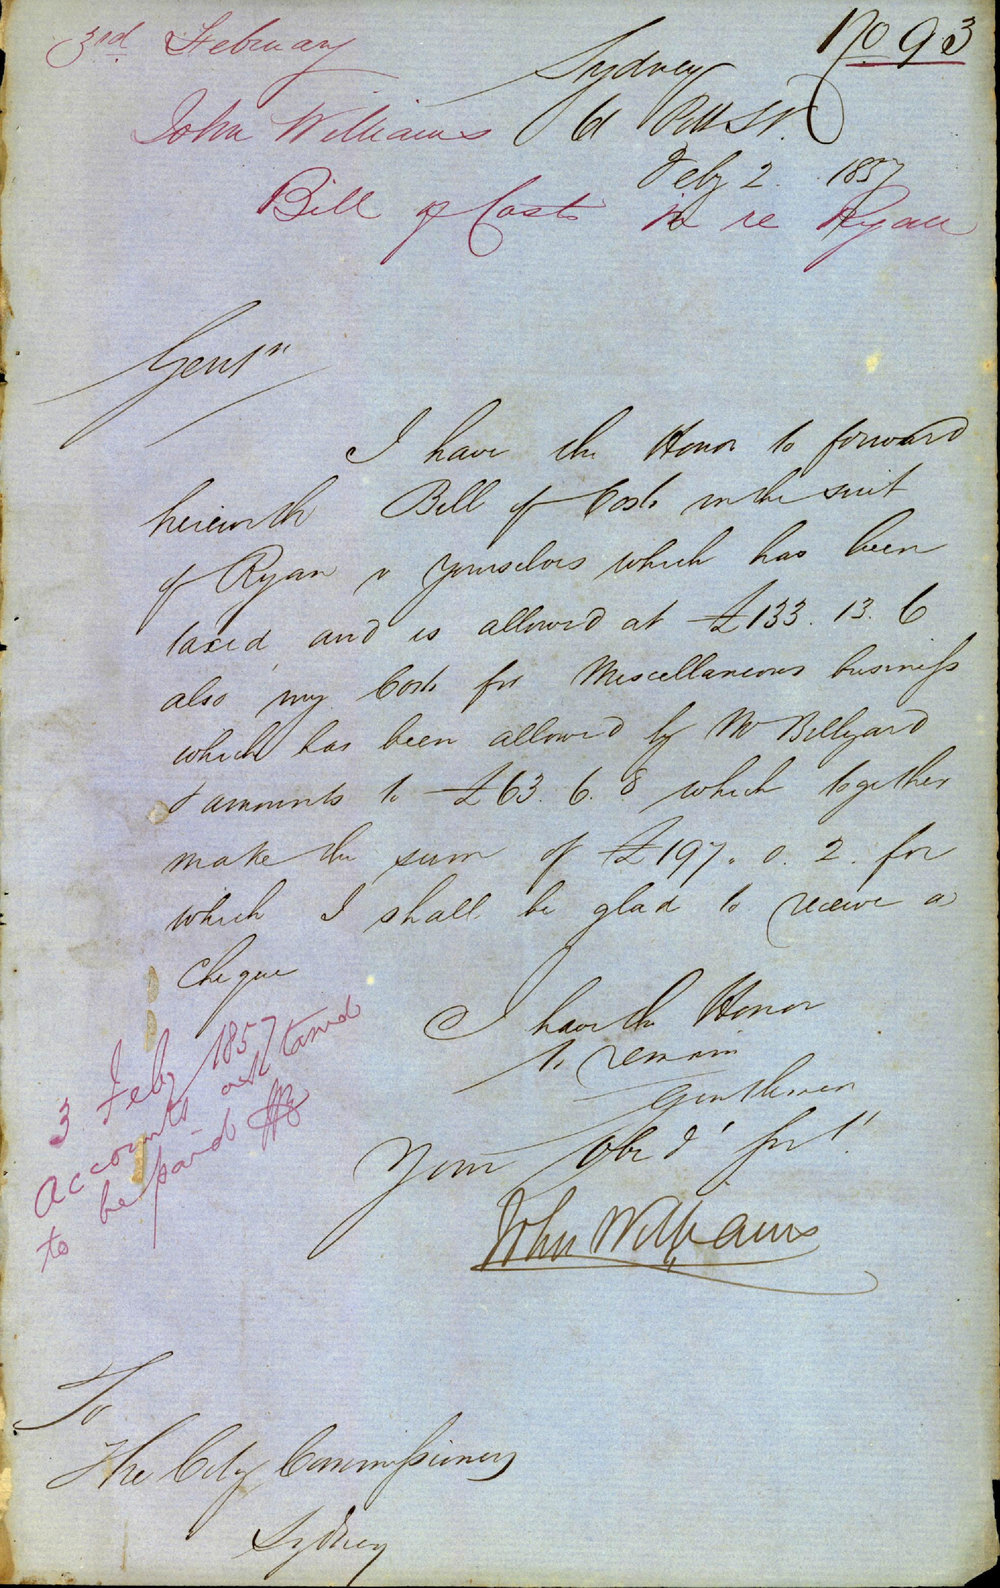 No 93
3rd February
Sydney
John Williams
61 Pitt St.
Feby 2 1857
Bill of Costs in re Ryan
Gentn
I have the Honor to forward
herewith Bill of Costs in the suit
of Ryan v yourselves which has been
taxed and is allowed at £133. 13. 6
also my Costs for Miscellaneous business
which has been allowed by Mr Billyard
& amounts to £63. 6. 8 which together
make the sum of £197. 0. 2. for
which I shall be glad to receive a
Cheque
I have the Honor
to remain
Gentlemen
Your Obed' Serv't
John Williams
3 Feby 1857
Accounts
to be paid
To
The City Commissioners
Sydney